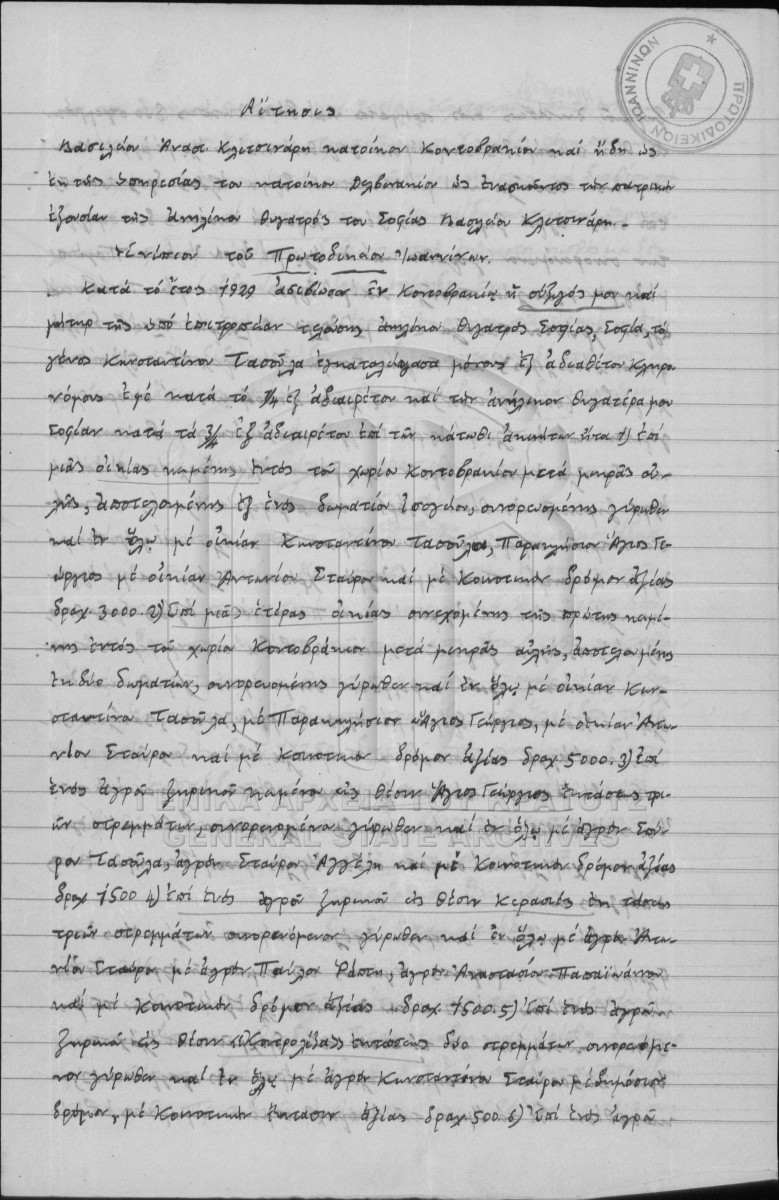 ΠΡΩΤΟΔΙΚΕΙΟΝ ΙΩΑΝΝΙΝΩΝ
Αἴτησις
Βασιλείου Αναστ. Κλετσινάρη κατοίκου Κοντοβρακίου καί ἤδη ὡς
ἐκ τῆς ὑπηρεσίας του κατοίκου Δελβινακίου ὡς ἐνασκοῦντος τήν πατρικήν
ἐξουσίαν τῆς ἀνηλίκου θυγατρός του Σοφίας Βασιλείου Κλετσινάρη.-
Ἐνώπιον τοῦ Πρωτοδικείου Ἰωαννίνων.
Κατά τό ἔτος 1929 ἀπεβίωσεν ἐν Κοντοβρακίῳ ἡ σύζυγός μου καί
μήτηρ τῆς ὑπό ἐπιτροπείαν τελούσης ἀνηλίκου θυγατρός Σοφίας, Σοφία, τό
γένος Κωνσταντίνου Τασοῦλα ἐγκαταλείψασα μόνους ἐξ ἀδιαθέτου κληρο
νόμους ἐμέ κατά τό 1/4 ἐξ ἀδιαιρέτου καί τήν ἀνήλικον θυγατέρα μου
Σοφίαν κατά τά 3/4 ἐξ ἀδιαιρέτου ἐπί τῶν κάτωθι ἀκινήτων ἤτοι 1) ἐπί
μιᾶς οἰκίας κειμένης ἐντός τοῦ χωρίου Κοντοβρακίου μετά μικρᾶς αὐ-
λῆς, ἀποτελουμένης ἐξ ἑνός δωματίου ἰσογείου, συνορευομένης γύρωθεν
καί ἐν ὅλῳ μέ οἰκίαν Κωνσταντίνου Τασούλα, Παρεκκλήσιον Ἅγιος Γε-
ώργιος μέ οἰκίαν Αντωνίου Σταύρου καί μέ Κοινοτικόν δρόμον ἀξίας
δραχ. 3000. 2) Ἐπί μιᾶς ἑτέρας οἰκίας συνεχομένης τῆς πρώτης κειμέ-
νης ἐντός τοῦ χωρίου Κοντοβράκιον μετά μικρᾶς αὐλῆς, ἀποτελουμένης
ἐκ δύο δωματίων, συνορευομένης γύρωθεν καί ἐν ὅλῳ μέ οἰκίαν Κων-
σταντίνου Τασούλα, μέ Παρεκκλήσιον Ἅγιος Γεώργιος, μέ οἰκίαν Ἀντω-
νίου Σταύρου καί μέ Κοινοτικόν δρόμον ἀξίας δραχ. 5000. 3) Ἐπί
ἑνός ἀγροῦ ξηρικοῦ κειμένου εἰς θέσιν Ἅγιος Γεώργιος ἐκτάσεως τρι-
ῶν στρεμμάτων, συνορευομένου γύρωθεν καί ἐν ὅλῳ μέ ἀγρόν Σπύ-
ρου Τασούλα, ἀγρόν Σταύρου Ἀγγέλη καί μέ Κοινοτικόν δρόμον ἀξίας
δραχ 1500 4) ἐπί ἑνός ἀγροῦ ξηρικοῦ εἰς θέσιν Κερασιές ἐκτάσεως
τριῶν στρεμμάτων συνορευόμενον γύρωθεν καί ἐν ὅλῳ μέ ἀγρόν Ἀντω-
νίου Σταύρου μέ ἀγρόν Παύλου Ράπτη, ἀγρόν Ἀναστασίου Παπαϊωάννου
καί μέ Κοινοτικόν δρόμον ἀξίας δραχ. 1500. 5) Ἐπί ἑνός ἀγροῦ
ξηρικοῦ εἰς θέσιν ἐκτάσεως δύο στρεμμάτων συνορευομέ-
νου γύρωθεν καί ἐν ὅλῳ μέ ἀγρόν Κωνσταντίνου Σταύρου μέ δημόσιον
δρόμον, μέ Κοινοτικήν ἔκτασιν ἀξίας δραχ. 500. 6) Ἐπί ἑνός ἀγροῦ
ΓΕΝΙΚΑ ΑΡΧΕΙΑ ΤΟΥ ΚΡΑΤΟΥΣ
GENERAL STATE ARCHIVES